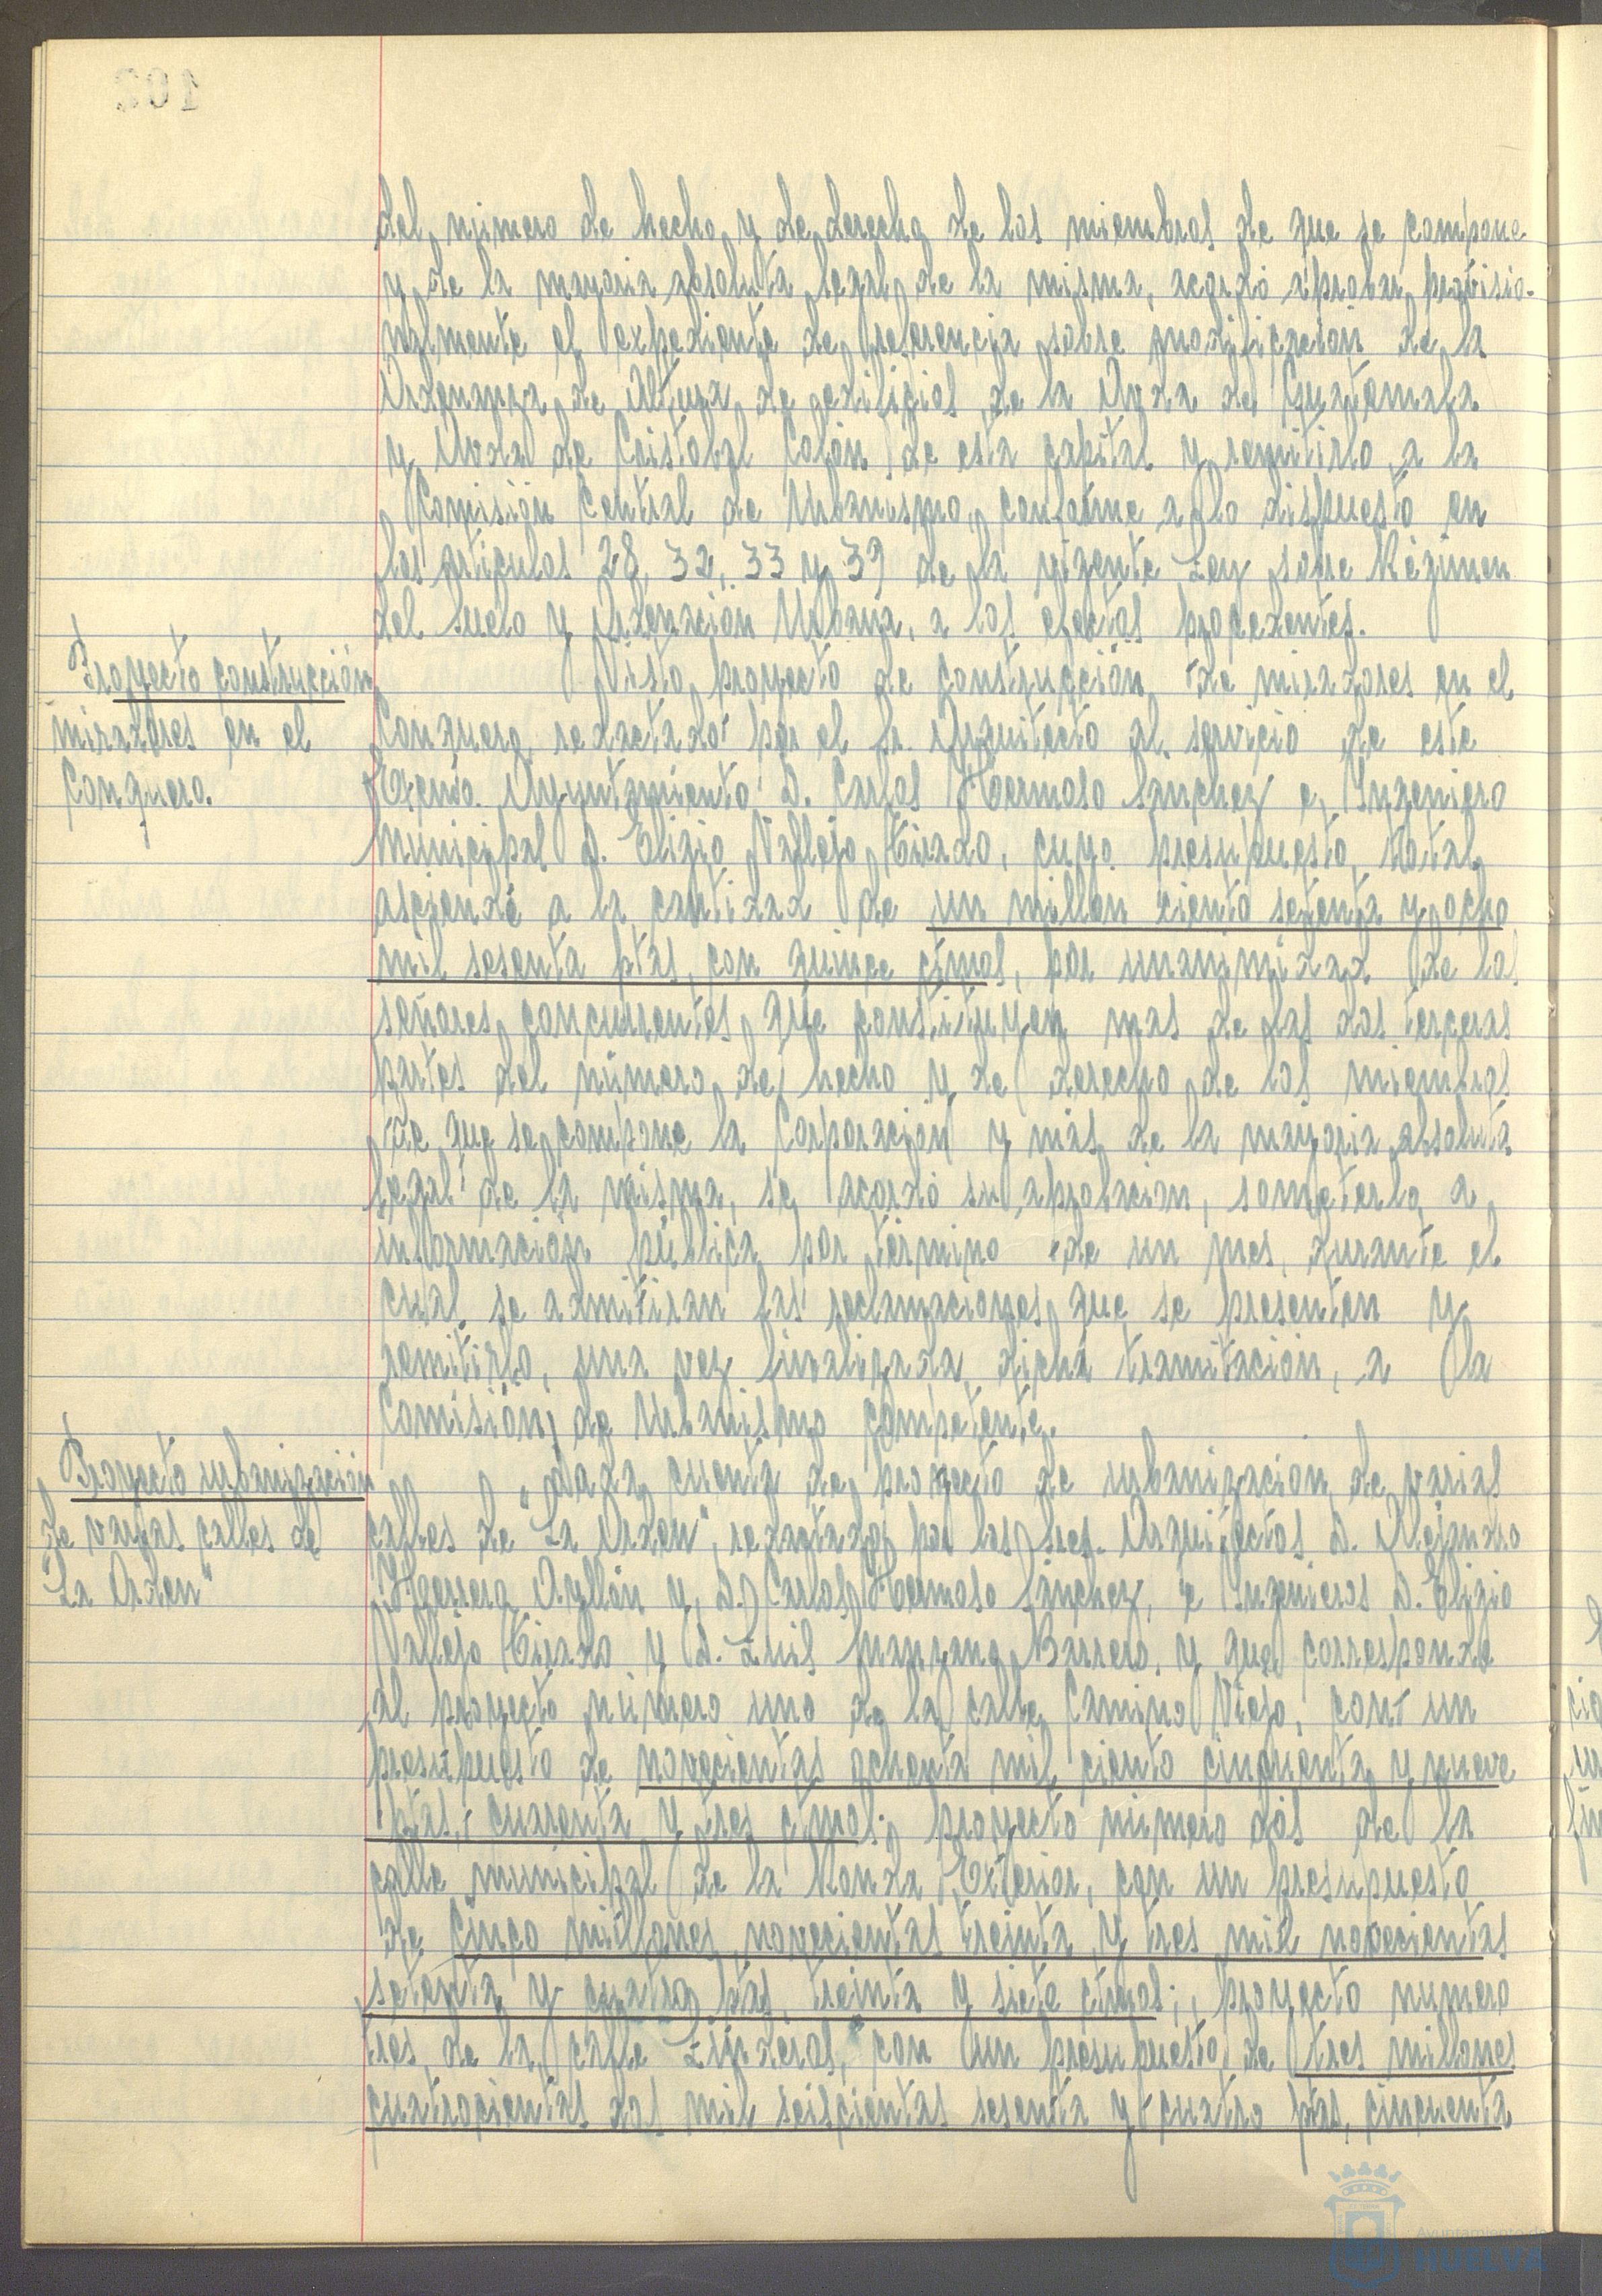 del número de hecho y de derecho de los miembros de que se compone
y de la mayoria absoluta legal de la misma, acordó aprobar provisio-
nalmente el expediente de referencia sobre modificación de la
Ordenanza de Altura de edificios de la Avda de Guatemala
y Avda de Cristobal Colón de esta capital y remitirlo a la
Comisión Central de Urbanismo, conforme a lo dispuesto en
los articulos 28, 32, 33 y 39 de la vigente Ley sobre Régimen
del Suelo y Ordenación Urbana, a los efectos procedentes.
Proyecto construcción
miradores en el
Conquero.
Visto proyecto de construcción de miradores en el
Conquero, redactado por el Sr. Arquitecto al servicio de este
Excmo. Ayuntamiento D. Carlos Hermoso Sánchez e Ingeniero
Municipal D. Eligio Vallejo Tirado, cuyo presupuesto total
asciende a la cantidad de un millon ciento setenta y ocho
mil sesenta ptas, con quince ctmos, por unanimidad de los
señores concurrentes, que constituyen mas de las dos terceras
partes del número de hecho y de derecho de los miembros
de que se compone la Corporación y más de la mayoria absoluta
legal de la misma, se acordó su aprobación, someterlo a
información pública por término de un mes, durante el
cual se admitiran las reclamaciones que se presenten y
remitirlo, una vez finalizada dicha tramitación, a la
Comisión de Urbanismo competente.
Proyecto urbanización
de varias calles de
La Orden"
Dada cuenta de proyecto de urbanización de varias
calles de "La Orden", redactado por los Sres. Arquitectos D. Alejandro
Herrera Ayllón y D. Carlos Hermoso Sánchez, e Ingenieros D. Eligio
Vallejo Tirado y D. Luis Manzano Barrero, y que corresponde
al proyecto número uno de la calle Camino Viejo, con un
presupuesto de novecientas ochenta mil ciento cincuenta y nueve
ptas, cuarenta y tres ctmos; proyecto número dos de la
calle municipal de la Ronda Exterior, con un presupuesto
de cinco millones novecientas treinta y tres mil novecientas
setenta y cuatro ptas, treinta y siete ctmos; proyecto numero
tres, de la calle Linderos, con un presupuesto de tres millones
cuatrocientas dos mil seiscientas sesenta y cuatro ptas, cincuenta
Ayuntamiento de
HUELVA